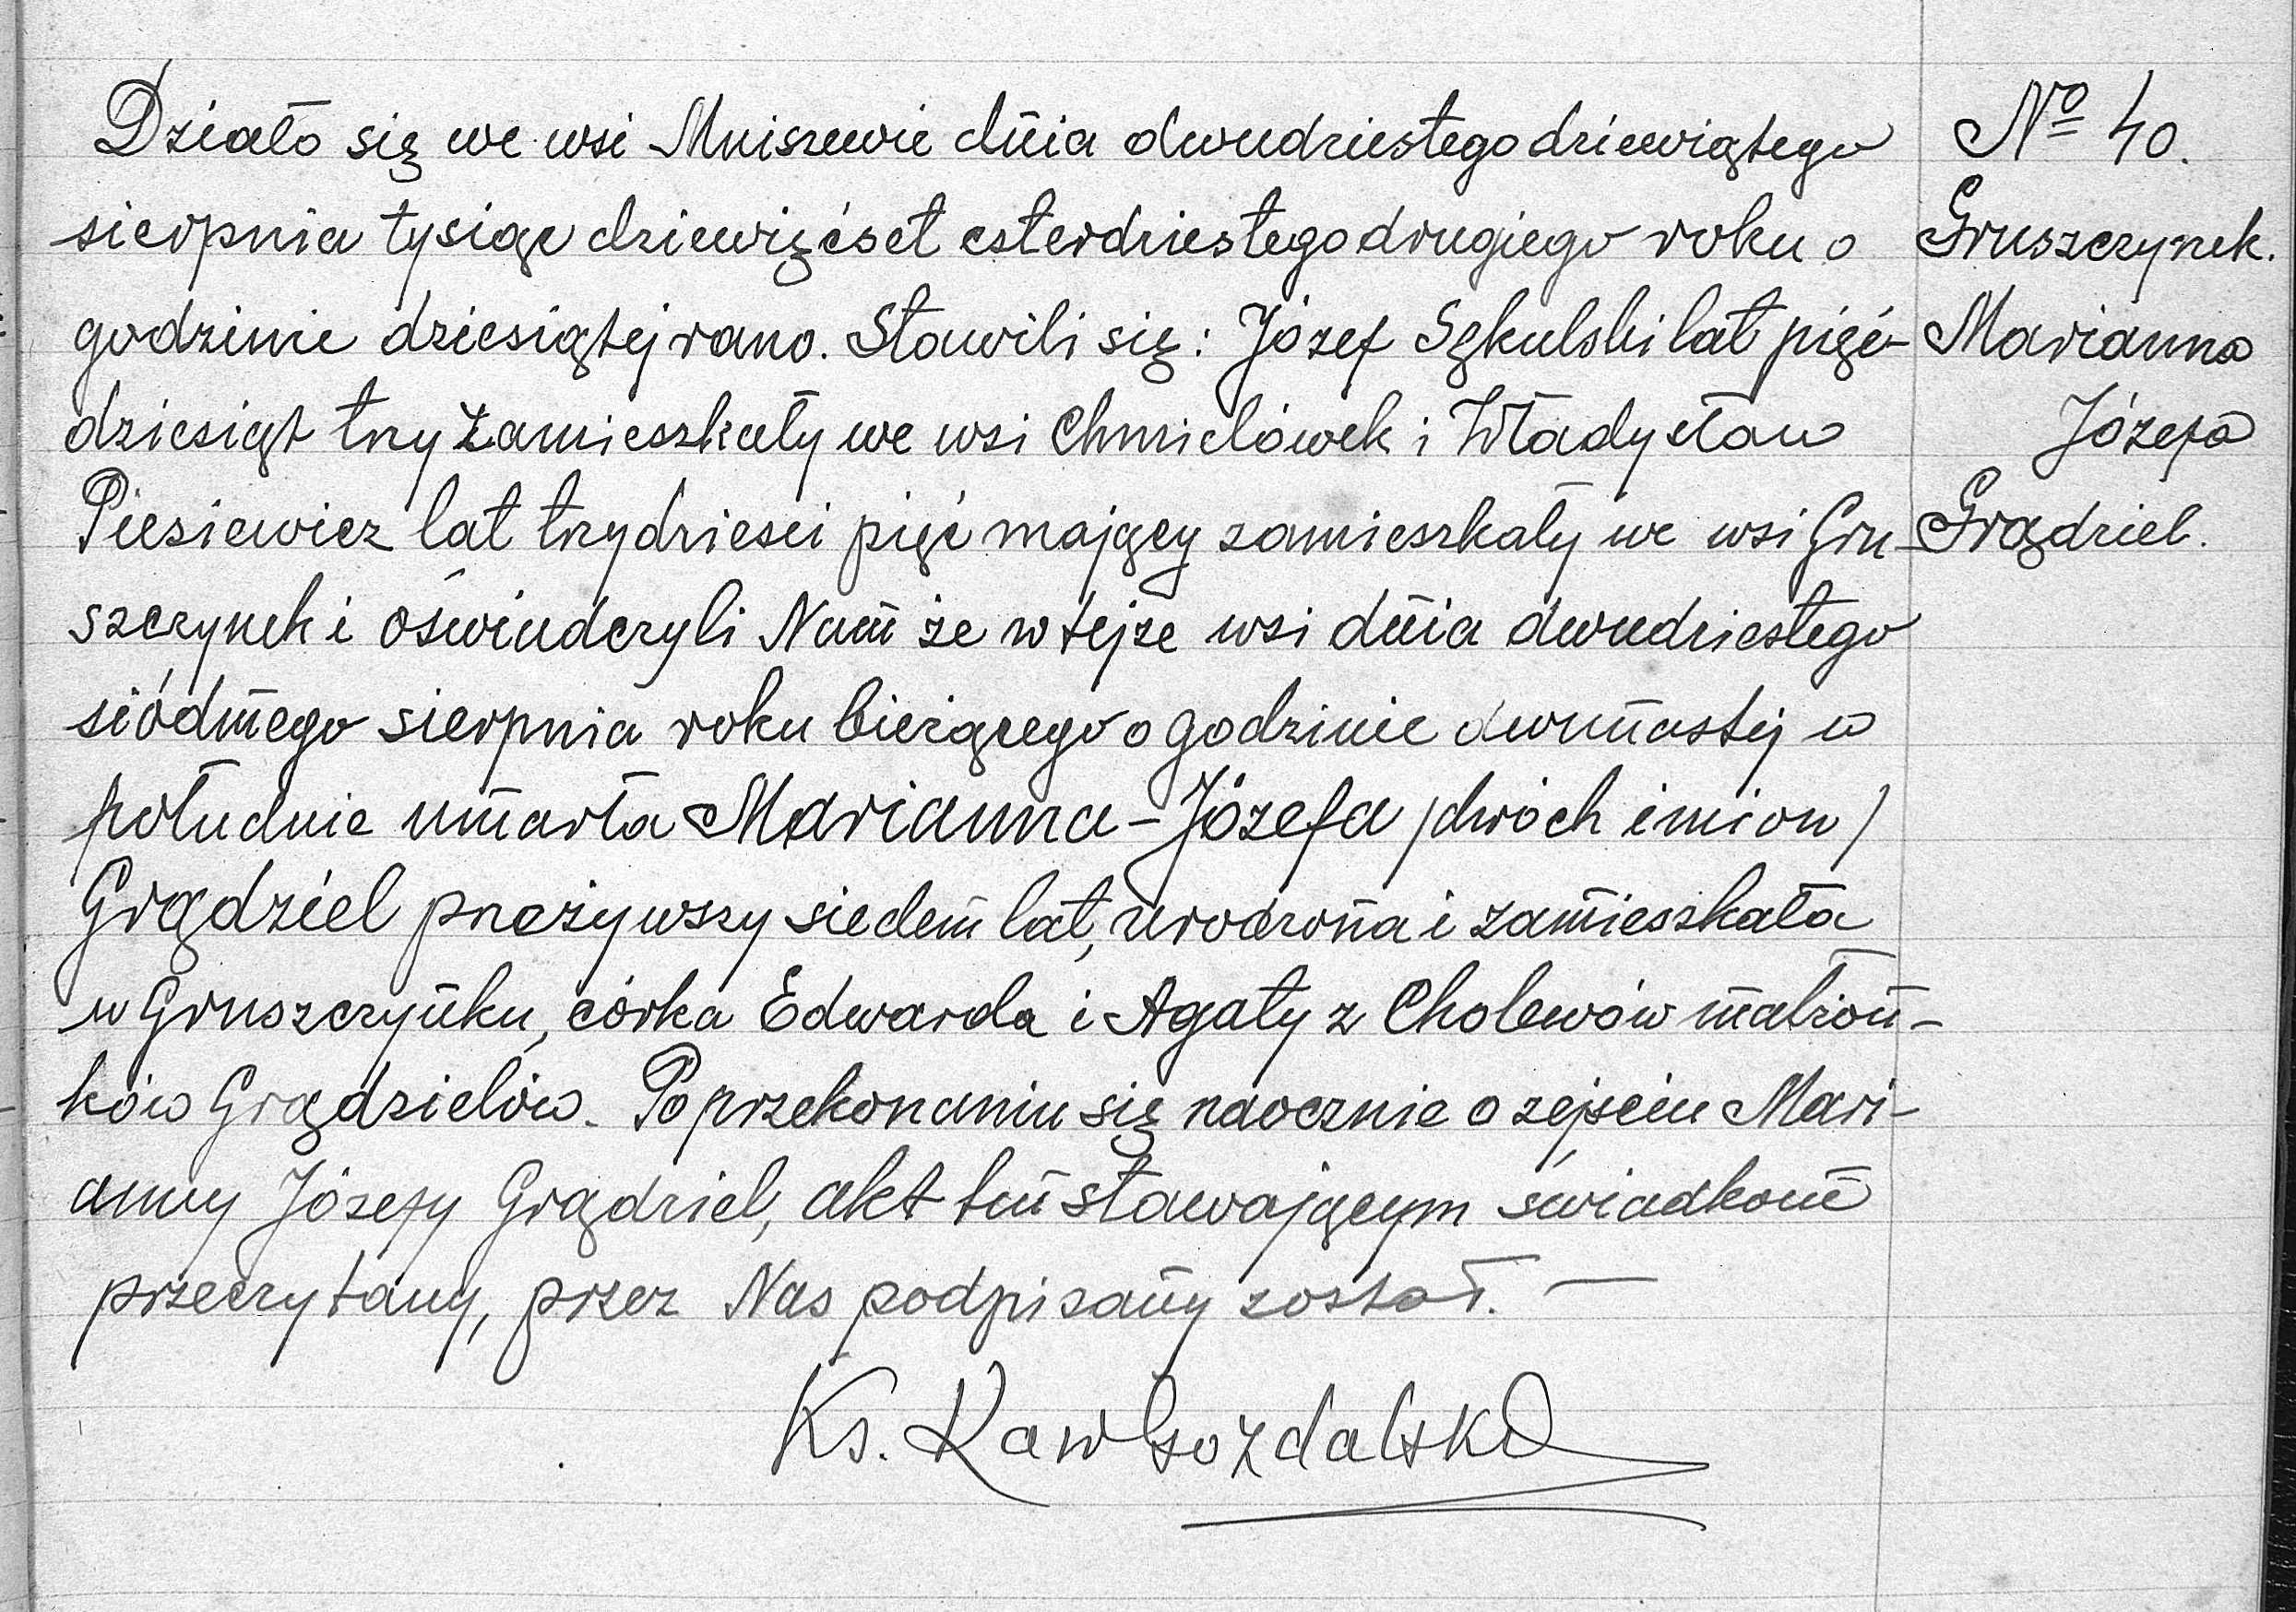 Działo się we wsi Mniszewie dnia dwudziestego dziewiątego
sierpnia tysiąc dziewięćset czterdziestego drugiego roku o
godzinie dziesiątej rano. Stawili się: Józef Sękulski lat pięć-
dziesiąt trzy zamieszkały we wsi Chmielówek i Władysław
Piesiewicz lat trzydzieści pięć mający zamieszkały we wsi Gru-
szczynek i oświadczyli Nam że w tejże wsi dnia dwudziestego
siódmego sierpnia roku bieżącego o godzinie dwunastej w
południe umarła Marianna-Józefa /dwóch imion/
Grądziel przeżywszy siedem lat, urodzona i zamieszkała
w Gruszczynku, córka Edwarda i Agaty z Cholewów małżon-
ków Grądzielów. Po przekonaniu się naocznie o zejściu Mari-
anny Józefy Grądziel, akt ten stawającym świadkom
przeczytany, przez Nas podpisany został. —
Ks.
No 40.
Gruszczynek.
Marianna
Józefa
Grądziel.